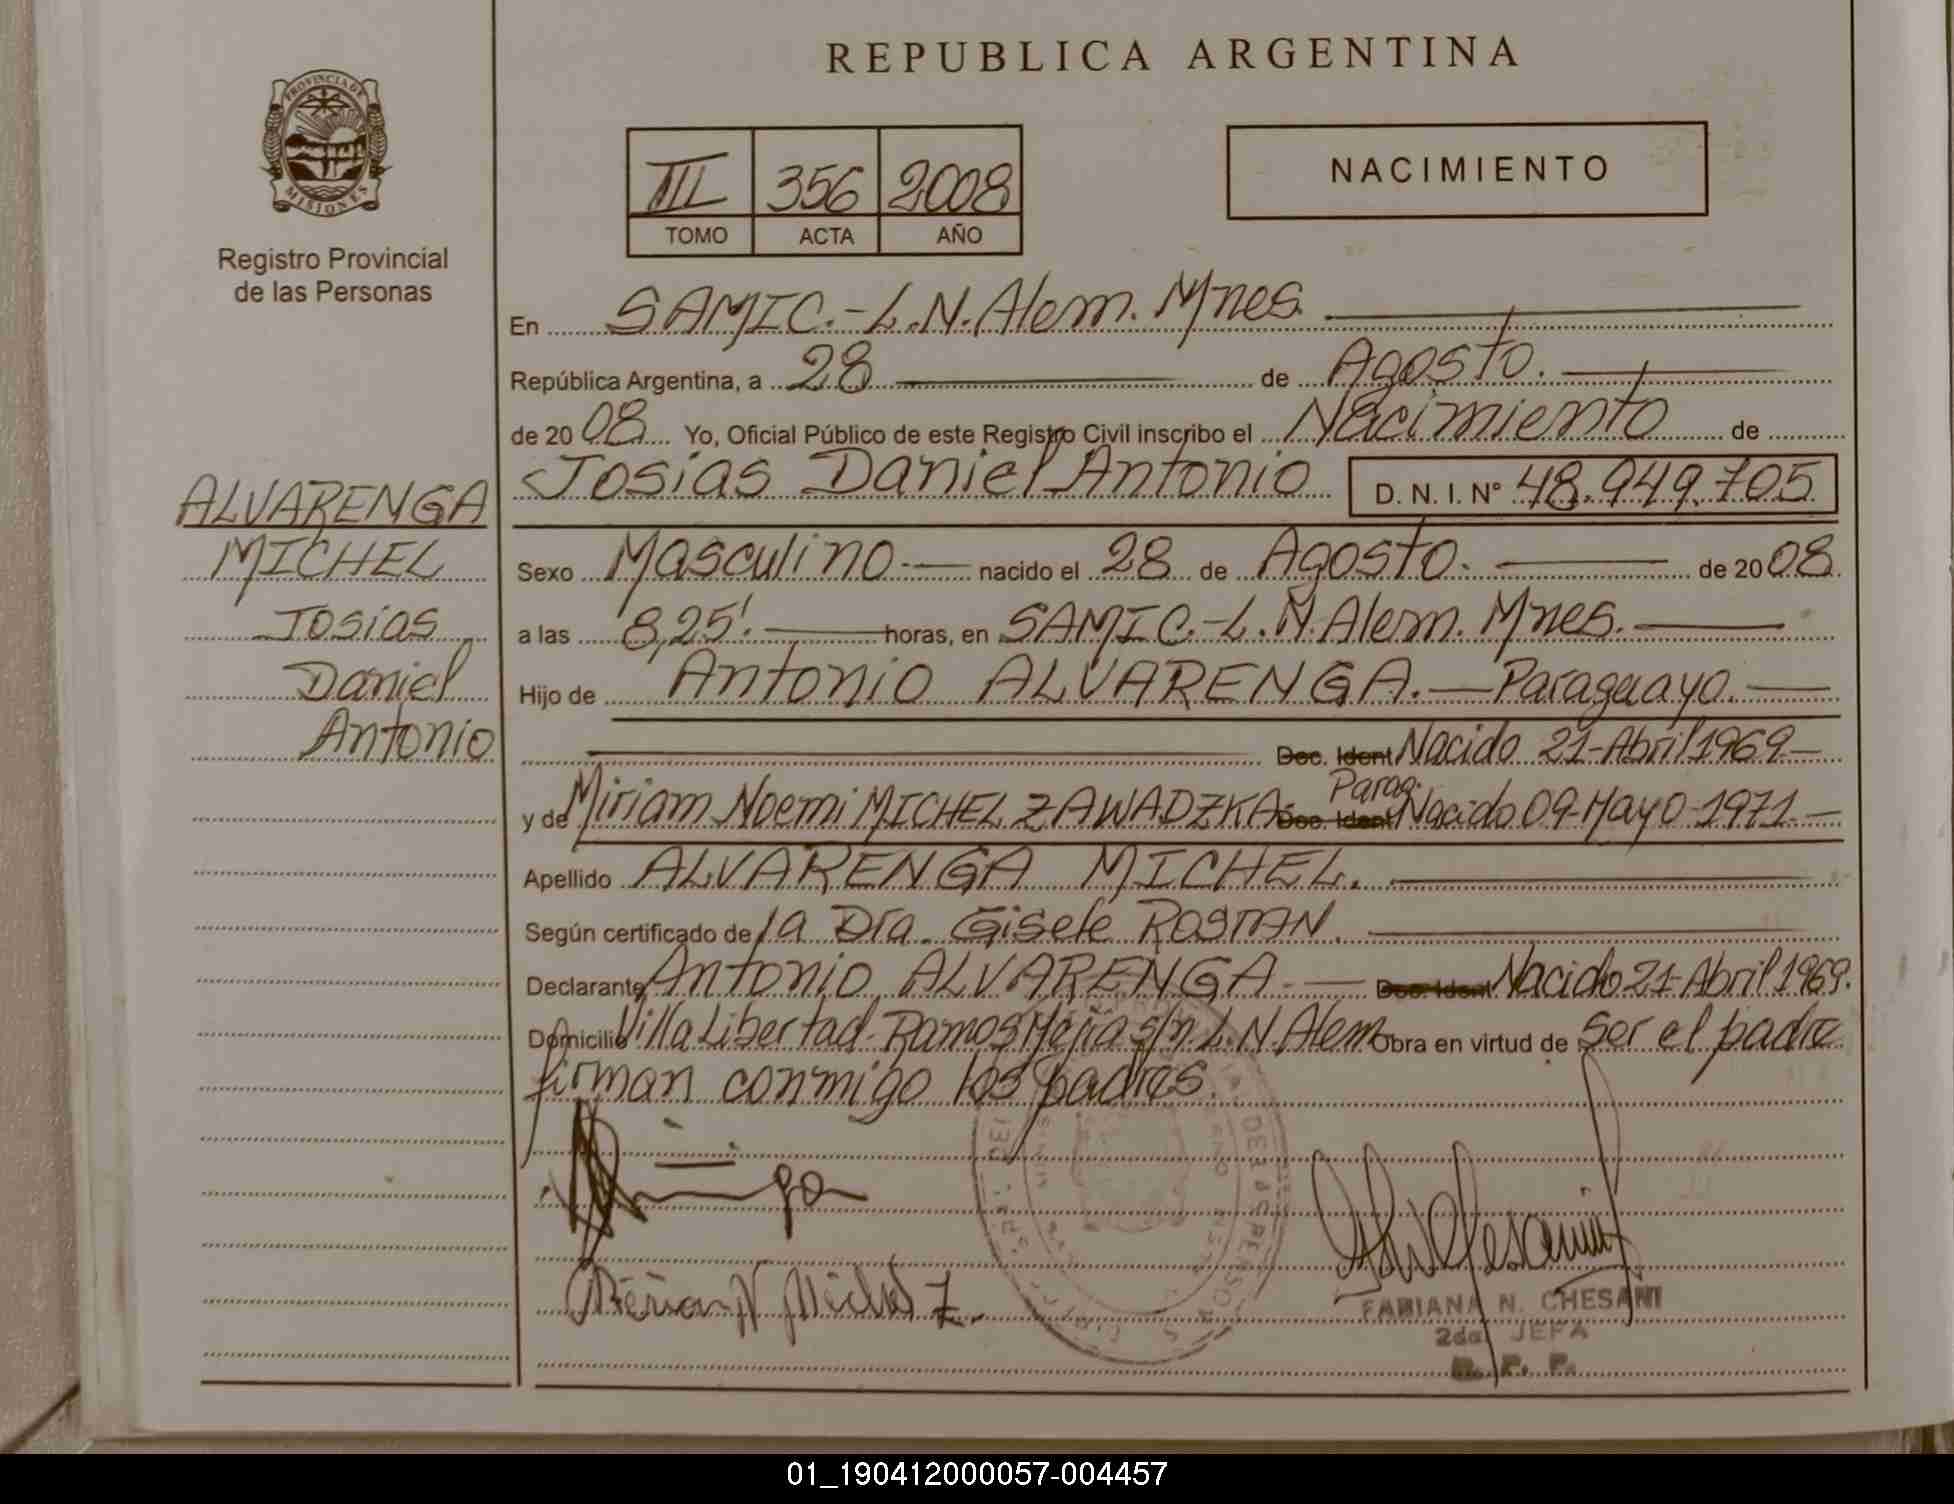 REPUBLICA ARGENTINA
PROVINCIA DE
MISIONES
Registro Provincial
de las Personas
III 356 2008
TOMO ACTA AÑO
NACIMIENTO
En SAMIC.-L.N.Alem. Mnes.
República Argentina, a 28 de Agosto.
de 20 08 Yo, Oficial Público de este Registro Civil inscribo el Nacimiento de
Josias Daniel Antonio D. N. I. N° 48.949.705
ALVARENGA
MICHEL
Josias
Daniel
Antonio
Sexo Masculino.- nacido el 28 de Agosto. de 20 08
a las 8,25'. horas, en SAMIC.-L.N.Alem. Mnes.
Hijo de Antonio ALVARENGA.- Paraguayo.
Doc. Ident Nacido 21-Abril 1969-
Parag.
y de Miriam Noemi MICHEL ZAWADZKA- Doc. Ident Nacido 09-Mayo-1971.-
Apellido ALVARENGA MICHEL.
Según certificado de la Dra. Gisele ROSTAN.
Declarante Antonio ALVARENGA.- Doc. Ident Nacido 21-Abril 1969.
Domicilio Villa Libertad-Ramos Mejia s/n L.N.Alem Obra en virtud de ser el padre
firman conmigo los padres.
Miriam N Michel Z.
FABIANA N. CHESANI
2da JEFA
R. P. P.
01_190412000057-004457